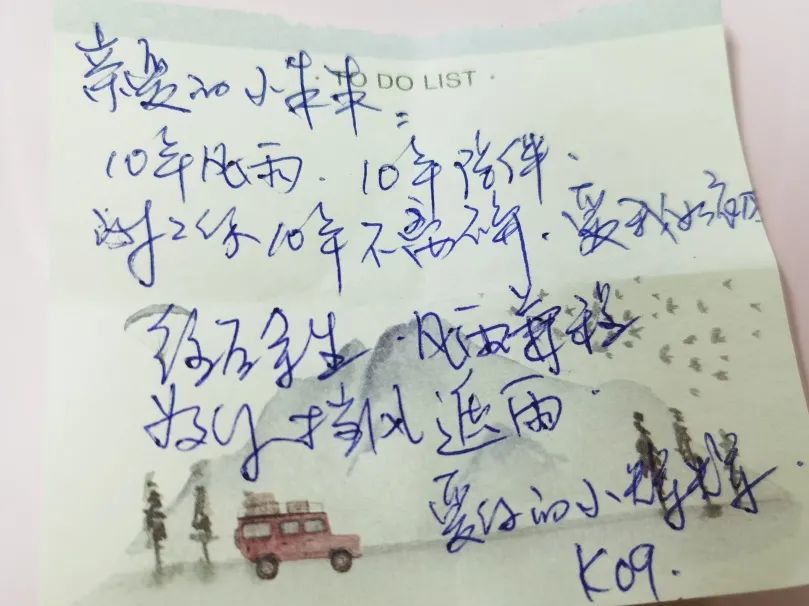 · TO DO LIST ·
亲爱的小朱朱:
10年风雨.10年陪伴.
谢谢你10年不离不弃.爱我如初
往后余生.风雨兼程
为你挡风遮雨.
爱你的小辉辉.
K09.